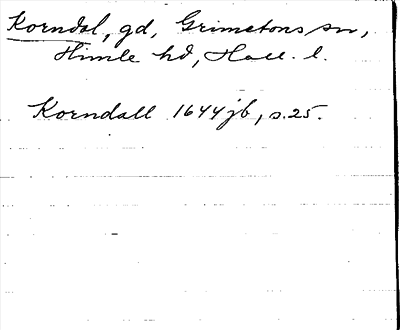 Korndal, gd, Grimetons sn,
Himle hd, Hall. l.
Korndall 1644 jb, s. 25.